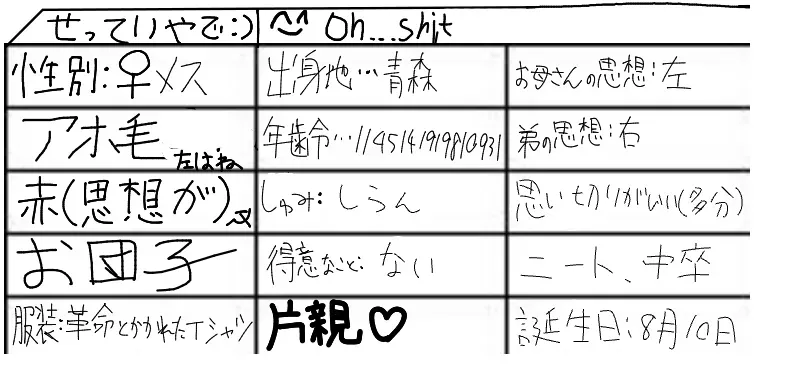 せってりやで:)
Oh...shit
性別:♀メス
出身地…青森
お母さんの思想:左
アホ毛 左はね
年齢…1145141919810931
弟の思想:右
赤(思想が)
しゅみ:しらん
思い切りがいい(多分)
お団子
得意なこと:ない
ニート、中卒
服装:革命とかかれたTシャツ
片親♡
誕生日:8月10日